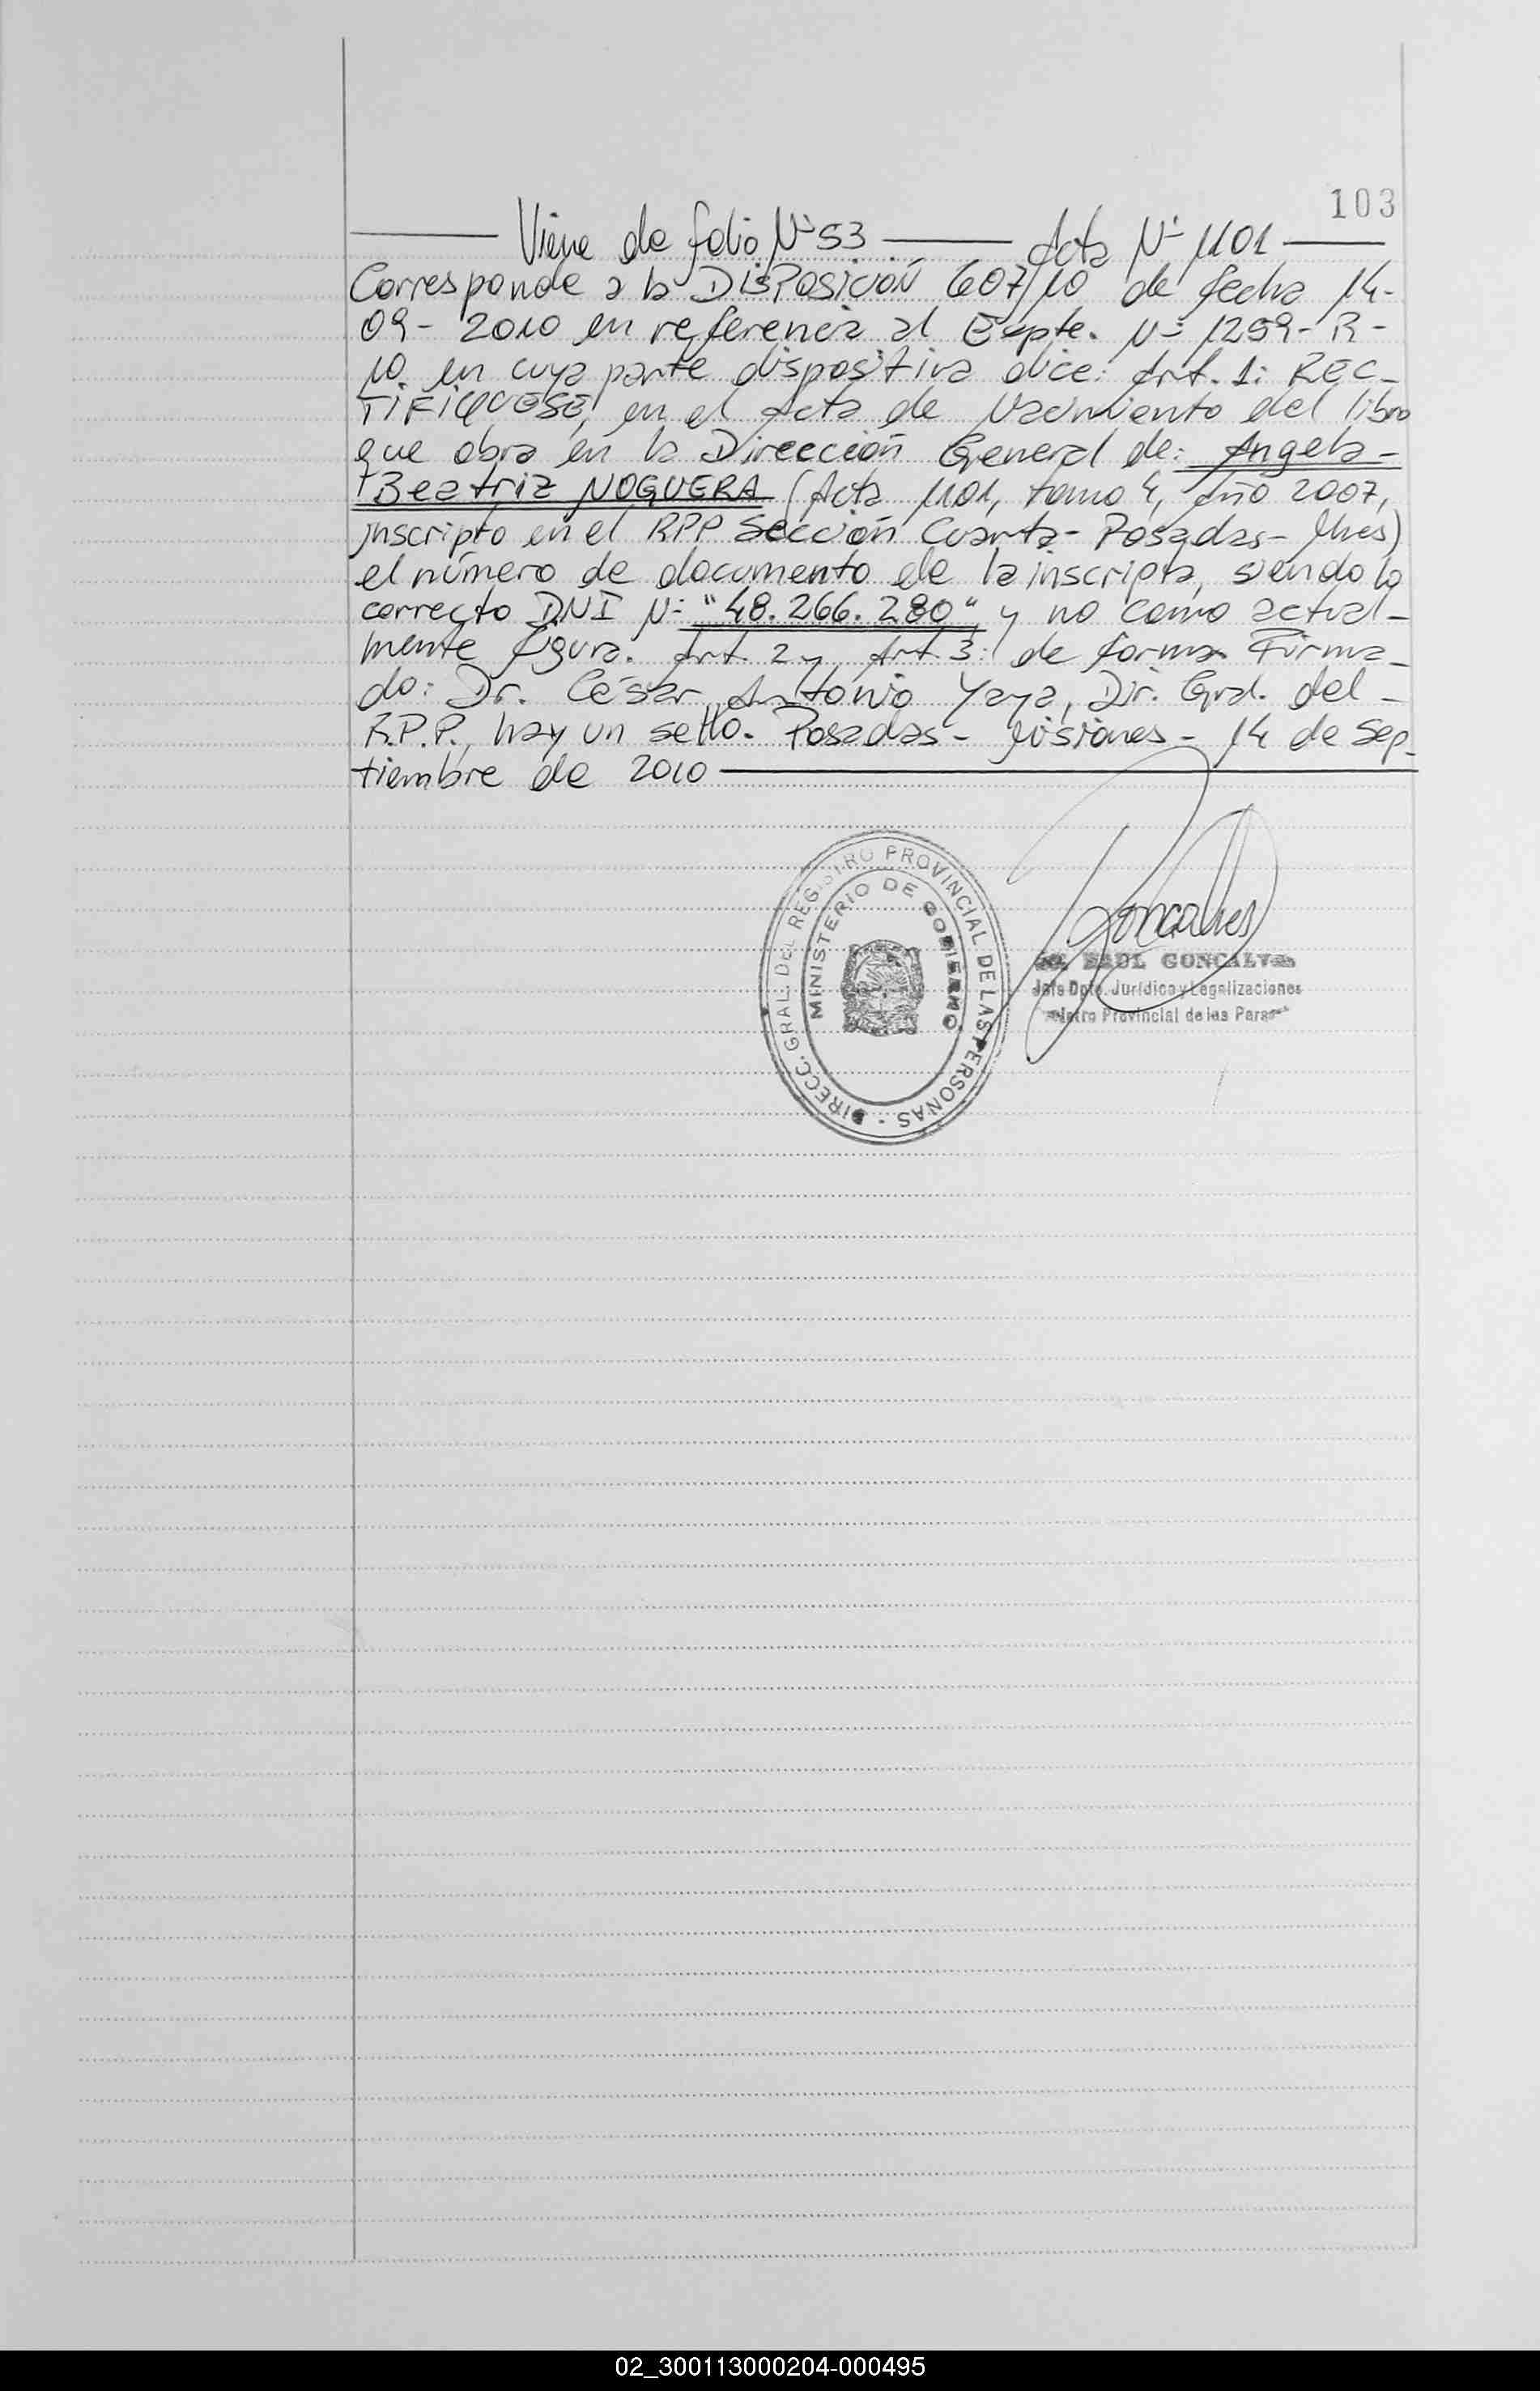 103
Viene de folio Nº 53 Acta Nº 1101
Corresponde a la DISPOSICIÓN 607/10 de fecha 14-
09- 2010 en referencia al Expte. Nº 1259- R-
10. en cuya parte dispositiva dice: Art. 1: REC-
TIFIQUESE, en el Acta de Nacimiento del libro
que obra en la Dirección General de: Angela-
Beatriz NOGUERA (Acta 1101, tomo 4, año 2007,
inscripto en el RPP Sección Cuarta- Posadas- Mnes)
el número de documento de la inscripta, siendo lo
correcto DNI Nº "48.266.280" y no como actual-
mente figura. Art. 2 y Art 3: de forma Firma-
do: Dr. César Antonio Yaya, Dir. Gral. del -
R.P.P., hay un sello. Posadas - Misiones - 14 de Sep-
tiembre de 2010
DIRECC. GRAL. DEL REGISTRO PROVINCIAL DE LAS PERSONAS -
MINISTERIO DE GOBIERNO
Goncalves
RAUL GONCALVES
Jefe Dpto. Jurídico y Legalizaciones
Provincial de las
02_300113000204-000495